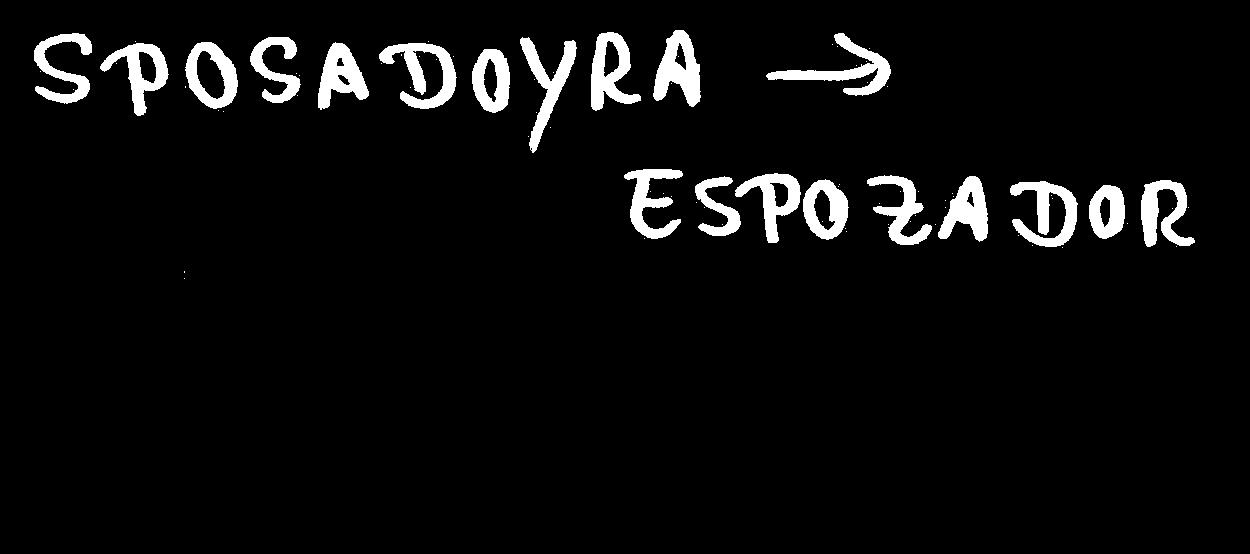 SPOSADOYRA →
ESPOZADOR